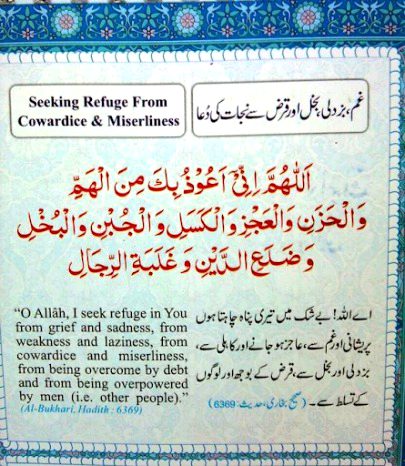 Seeking Refuge From
Cowardice & Miserliness
غم، بزدلی، بخل اور قرض سے نجات کی دُعا
اَللّٰهُمَّ اِنِّیْۤ اَعُوْذُ بِكَ مِنَ الْهَمِّ
وَالْحَزَنِ وَالْعَجْزِ وَالْكَسَلِ وَالْجُبْنِ وَالْبُخْلِ
وَضَلَعِ الدَّيْنِ وَغَلَبَةِ الرِّجَالِ
“O Allâh, I seek refuge in You
from grief and sadness, from
weakness and laziness, from
cowardice and miserliness,
from being overcome by debt
and from being overpowered
by men (i.e. other people).”
(Al-Bukhari, Hadith : 6369)
اے اللہ! بے شک میں تیری پناہ چاہتا ہوں
پریشانی اور غم سے، عاجز ہو جانے اور کاہلی سے،
بزدلی اور بخل سے، قرض کے بوجھ اور لوگوں
کے تسلط سے۔ (صحیح بخاری، حدیث: 6369)